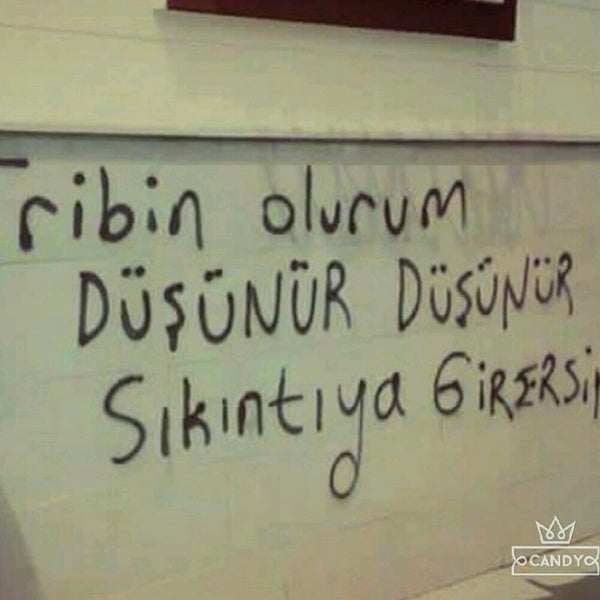 Tribin olurum
DÜŞÜNÜR DÜŞÜNÜR
Sıkıntıya GiRERSin
CANDY